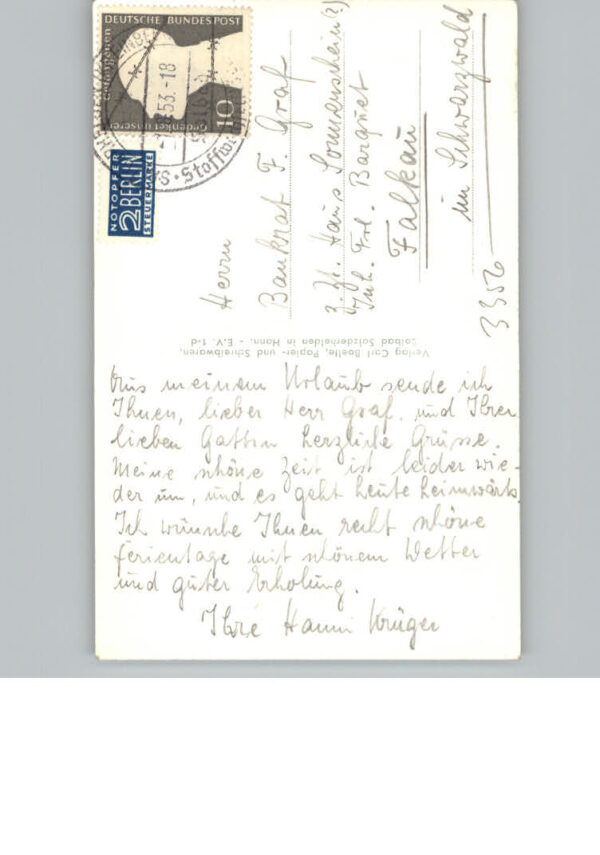 DEUTSCHE BUNDESPOST
Gedenket unserer
Gefangenen
10
53.-18
NOTOPFER
2 BERLIN
STEUERMARKE
Herrn
Bankrat F. Graf
z. Zt. Haus Sonnenschein (?)
Inh. Frl. Barquet
Falkau
im Schwarzwald
3356
Verlag Carl Boelle, Papier- und Schreibwaren,
Solbad Salzderhelden in Hann. - E.V. 1-d
Aus meinem Urlaub sende ich
Ihnen, lieber Herr Graf, und Ihrer
lieben Gattin herzliche Grüsse.
Meine schöne Zeit ist leider wie-
der um, und es geht heute heimwärts.
Ich wünsche Ihnen recht schöne
Ferientage mit schönem Wetter
und guter Erholung.
Ihre Hanni Krüger